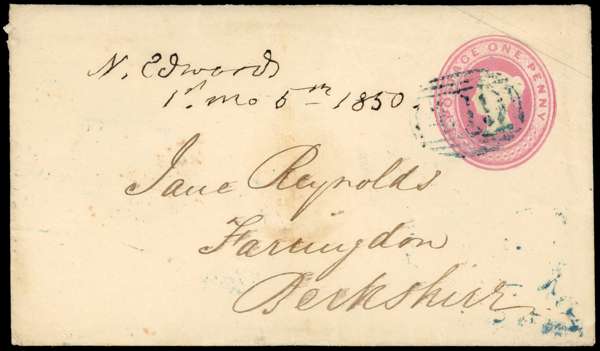 N. Edwards
1st. Mo 5th 1850.
POSTAGE ONE PENNY
Jane Reynolds
Farringdon
Berkshire